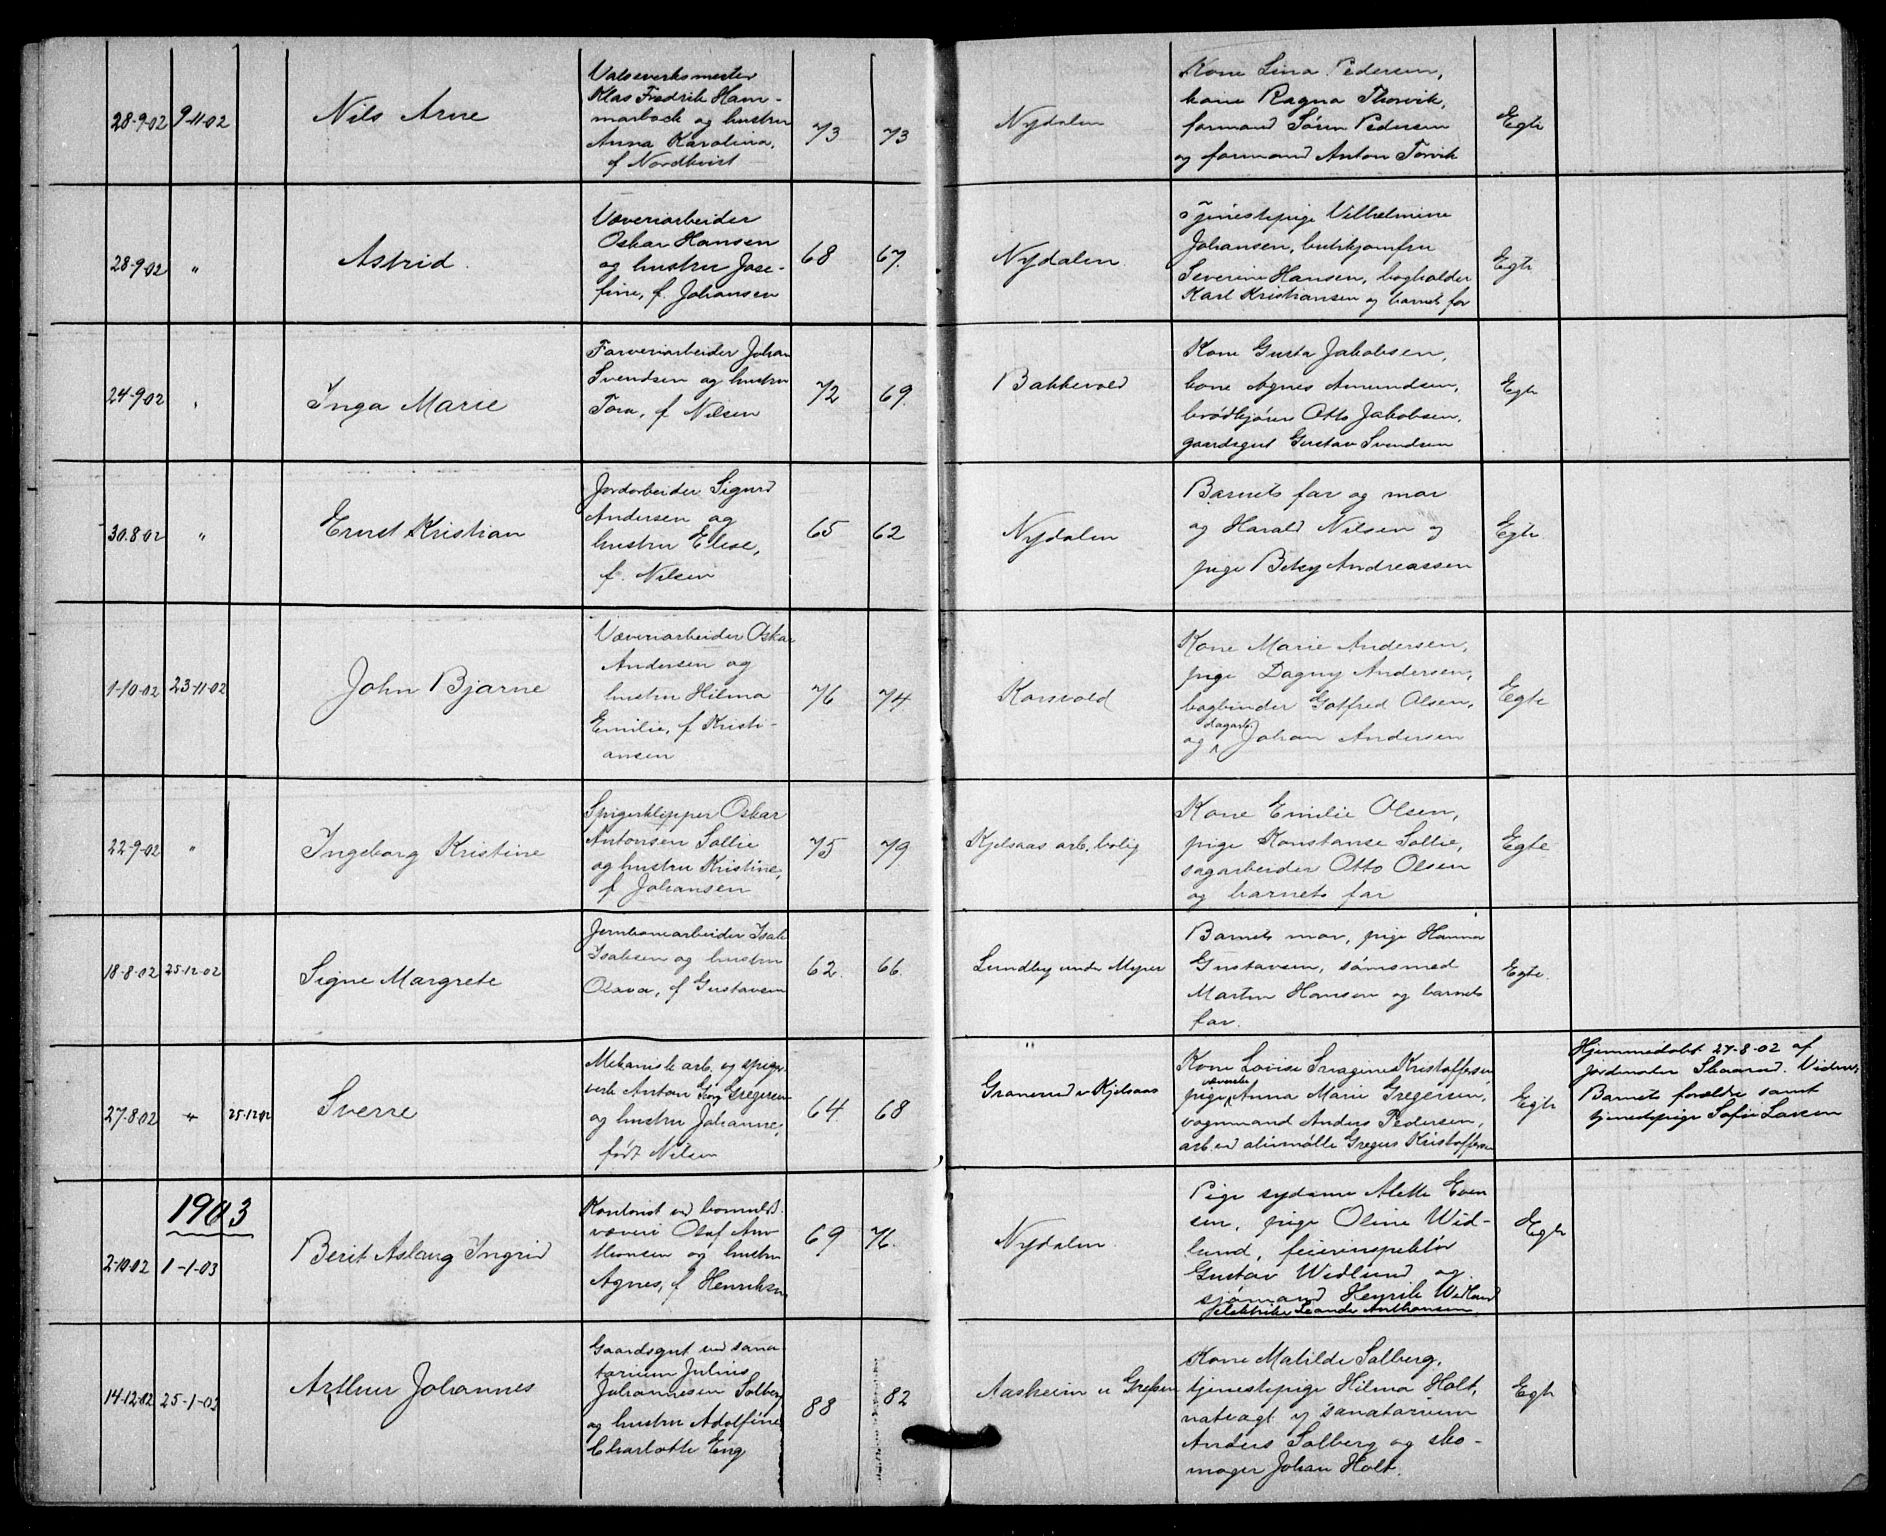 28-9-02 9-11-02 Nils Arne
Valseverksmester
Klas Fredrik Ham-
marbock og hustru
Anna Karolina,
f Nordkvist
73 73
Nydalen
Kone Lina Pedersen,
kone Ragna Thorvik,
formand Søren Pedersen
og formand Anton Torvik
Egte
28-9-02 " Astrid.
Væveriarbeider
Oskar Hansen
og hustru Jose-
fine, f. Johansen
68 67.
Nydalen.
Tjenestepige Vilhelmine
Johansen, butikjomfru
Severine Hansen, bogholder
Karl Kristiansen og barnets far
Egte
24-9-02 " Inga Marie
Farveriarbeider Johan
Svendsen og hustru
Tora, f Nilsen
72 69.
Bakkevold
Kone Gusta Jakobsen,
kone Agnes Amundsen,
brødkjører Otto Jakobsen,
gaardsgut Gustav Svendsen
Egte
30.8.02 " Ernst Kristian
Jordarbeider Sigurd
Andersen og
hustru Elise,
f. Nilsen
65 62
Nydalen
Barnets far og mor
og Harald Nilsen og
pige Betsy Andreassen
Egte
1-10-02 23-11-02 John Bjarne
Væveriarbeider Oskar
Andersen og
hustru Hilma
Emilie, f Kristi-
ansen
76 74
Korsvold
Kone Marie Andersen,
pige Dagny Andersen,
bogbinder Gotfred Olsen,
og dagarb. Johan Andersen
Egte
22-9-02 " Ingeborg Kristine
Spigerklipper Oskar
Antonsen Sollie
og hustru Kristine,
f Johansen
75 79
Kjelsaas arb. bolig
Kone Emilie Olsen,
pige Konstanse Sollie,
sagarbeider Otto Olsen
og barnets far
Egte
18-8-02 25-12-02 Signe Margrete
Jernbanearbeider Isak
Isaksen og hustru
Olava, f Gustavsen
62. 66.
Lundby under Myrer
Barnets mor, pige Hanna
Gustavsen, sømsmed
Martin Hansen og barnets
far.
Egte.
27-8-02 " 25-12-02 Sverre
Mekaniske arb. og spiger-
verk Anton Georg Gregersen
og hustru Johanne,
født Nilsen
64. 68
Granerud v Kjelsaas
Kone Lovise Kristoffersen,
pige væverske Anna Marie Gregersen,
vognmand Anders Pedersen,
arb. ved Gregus Kristoffersen
Egte
Hjemmedøbt 27-8-02 af
jordmoder Skaarud. Vidner,
Barnets forældre samt
tjenestepige Sofie Larsen
1903
2-10-02 1-1-03 Berit Aslaug Ingrid
Kontorist ved bomulds-
væveri Olaf An-
thonsen og hustru
Agnes, f Henriksen
69 76.
Nydalen
Pige sydame Alette Even
sen, pige Oline Wid-
lund, feierinspektør
Gustav Widlund og
sjømand Henrik Widlund
elektriker Leander Anthonsen
Egte
14-12-02 25-1-03 Arthur Johannes
Gaardsgut ved sana-
torium Julius
Johannesen Solberg
og hustru Adolfine
Charlotte Eng
88 82
Aasheim u Grefsen
Kone Matilde Solberg,
tjenestepige Hilma Holt,
natvagt v sanatorium
Anders Solberg og sko-
mager Johan Holt.
Egte